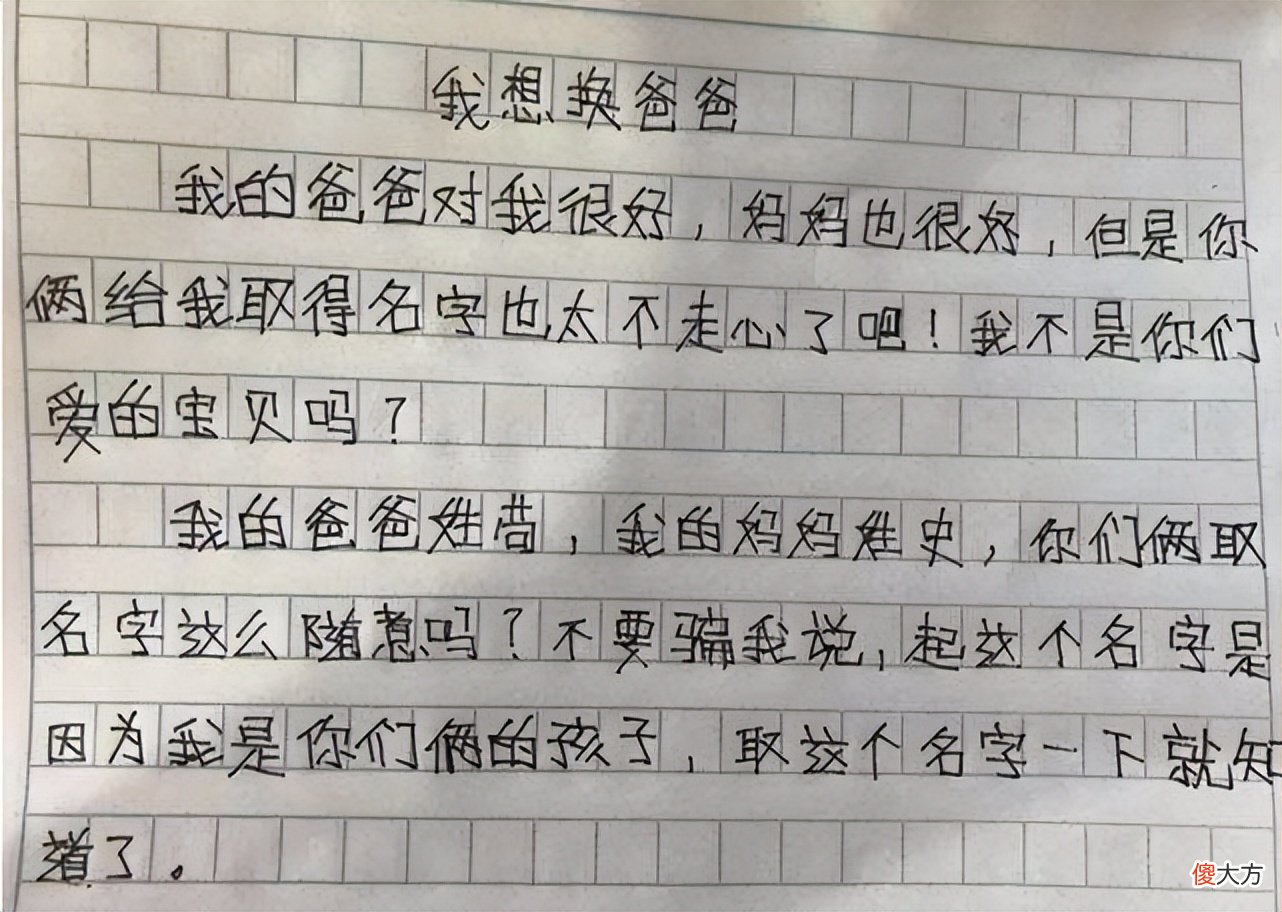 我想换爸爸
我的爸爸对我很好，妈妈也很好，但是你
俩给我取得名字也太不走心了吧！我不是你们
爱的宝贝吗？
我的爸爸姓尚，我的妈妈姓史，你们俩取
名字这么随意吗？不要骗我说，起这个名字是
因为我是你们俩的孩子，取这个名字一下就知
道了。
傻大方